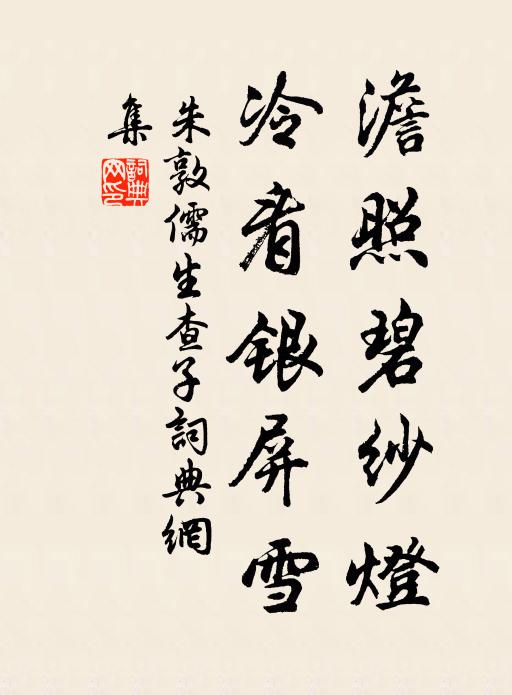 澹照碧紗燈
冷看銀屏雪
朱敦儒生查子詞典網
集
詞典網印